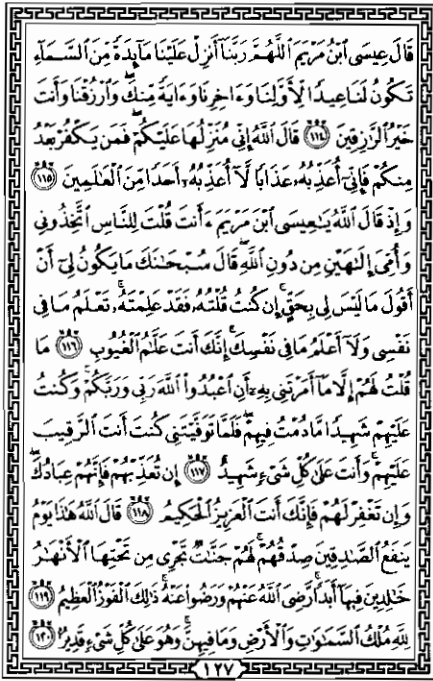 قَالَ عِيسَى ٱبْنُ مَرْيَمَ ٱللَّهُمَّ رَبَّنَآ أَنزِلْ عَلَيْنَا مَآئِدَةً مِّنَ ٱلسَّمَآءِ
تَكُونُ لَنَا عِيدًا لِّأَوَّلِنَا وَءَاخِرِنَا وَءَايَةً مِّنكَ ۖ وَٱرْزُقْنَا وَأَنتَ
خَيْرُ ٱلرَّٰزِقِينَ ١١٤ قَالَ ٱللَّهُ إِنِّى مُنَزِّلُهَا عَلَيْكُمْ ۖ فَمَن يَكْفُرْ بَعْدُ
مِنكُمْ فَإِنِّىٓ أُعَذِّبُهُۥ عَذَابًا لَّآ أُعَذِّبُهُۥٓ أَحَدًا مِّنَ ٱلْعَٰلَمِينَ ١١٥
وَإِذْ قَالَ ٱللَّهُ يَٰعِيسَى ٱبْنَ مَرْيَمَ ءَأَنتَ قُلْتَ لِلنَّاسِ ٱتَّخِذُونِى
وَأُمِّىَ إِلَٰهَيْنِ مِن دُونِ ٱللَّهِ ۖ قَالَ سُبْحَٰنَكَ مَا يَكُونُ لِىٓ أَنْ
أَقُولَ مَا لَيْسَ لِى بِحَقٍّ ۚ إِن كُنتُ قُلْتُهُۥ فَقَدْ عَلِمْتَهُۥ ۚ تَعْلَمُ مَا فِى
نَفْسِى وَلَآ أَعْلَمُ مَا فِى نَفْسِكَ ۚ إِنَّكَ أَنتَ عَلَّٰمُ ٱلْغُيُوبِ ١١٦ مَا
قُلْتُ لَهُمْ إِلَّا مَآ أَمَرْتَنِى بِهِۦٓ أَنِ ٱعْبُدُوا۟ ٱللَّهَ رَبِّى وَرَبَّكُمْ ۚ وَكُنتُ
عَلَيْهِمْ شَهِيدًا مَّا دُمْتُ فِيهِمْ ۖ فَلَمَّا تَوَفَّيْتَنِى كُنتَ أَنتَ ٱلرَّقِيبَ
عَلَيْهِمْ ۚ وَأَنتَ عَلَىٰ كُلِّ شَىْءٍ شَهِيدٌ ١١٧ إِن تُعَذِّبْهُمْ فَإِنَّهُمْ عِبَادُكَ ۖ
وَإِن تَغْفِرْ لَهُمْ فَإِنَّكَ أَنتَ ٱلْعَزِيزُ ٱلْحَكِيمُ ١١٨ قَالَ ٱللَّهُ هَٰذَا يَوْمُ
يَنفَعُ ٱلصَّٰدِقِينَ صِدْقُهُمْ ۚ لَهُمْ جَنَّٰتٌ تَجْرِى مِن تَحْتِهَا ٱلْأَنْهَٰرُ
خَٰلِدِينَ فِيهَآ أَبَدًا ۚ رَّضِىَ ٱللَّهُ عَنْهُمْ وَرَضُوا۟ عَنْهُ ۚ ذَٰلِكَ ٱلْفَوْزُ ٱلْعَظِيمُ ١١٩
لِلَّهِ مُلْكُ ٱلسَّمَٰوَٰتِ وَٱلْأَرْضِ وَمَا فِيهِنَّ ۚ وَهُوَ عَلَىٰ كُلِّ شَىْءٍ قَدِيرٌۢ ١٢٠
١٢٧